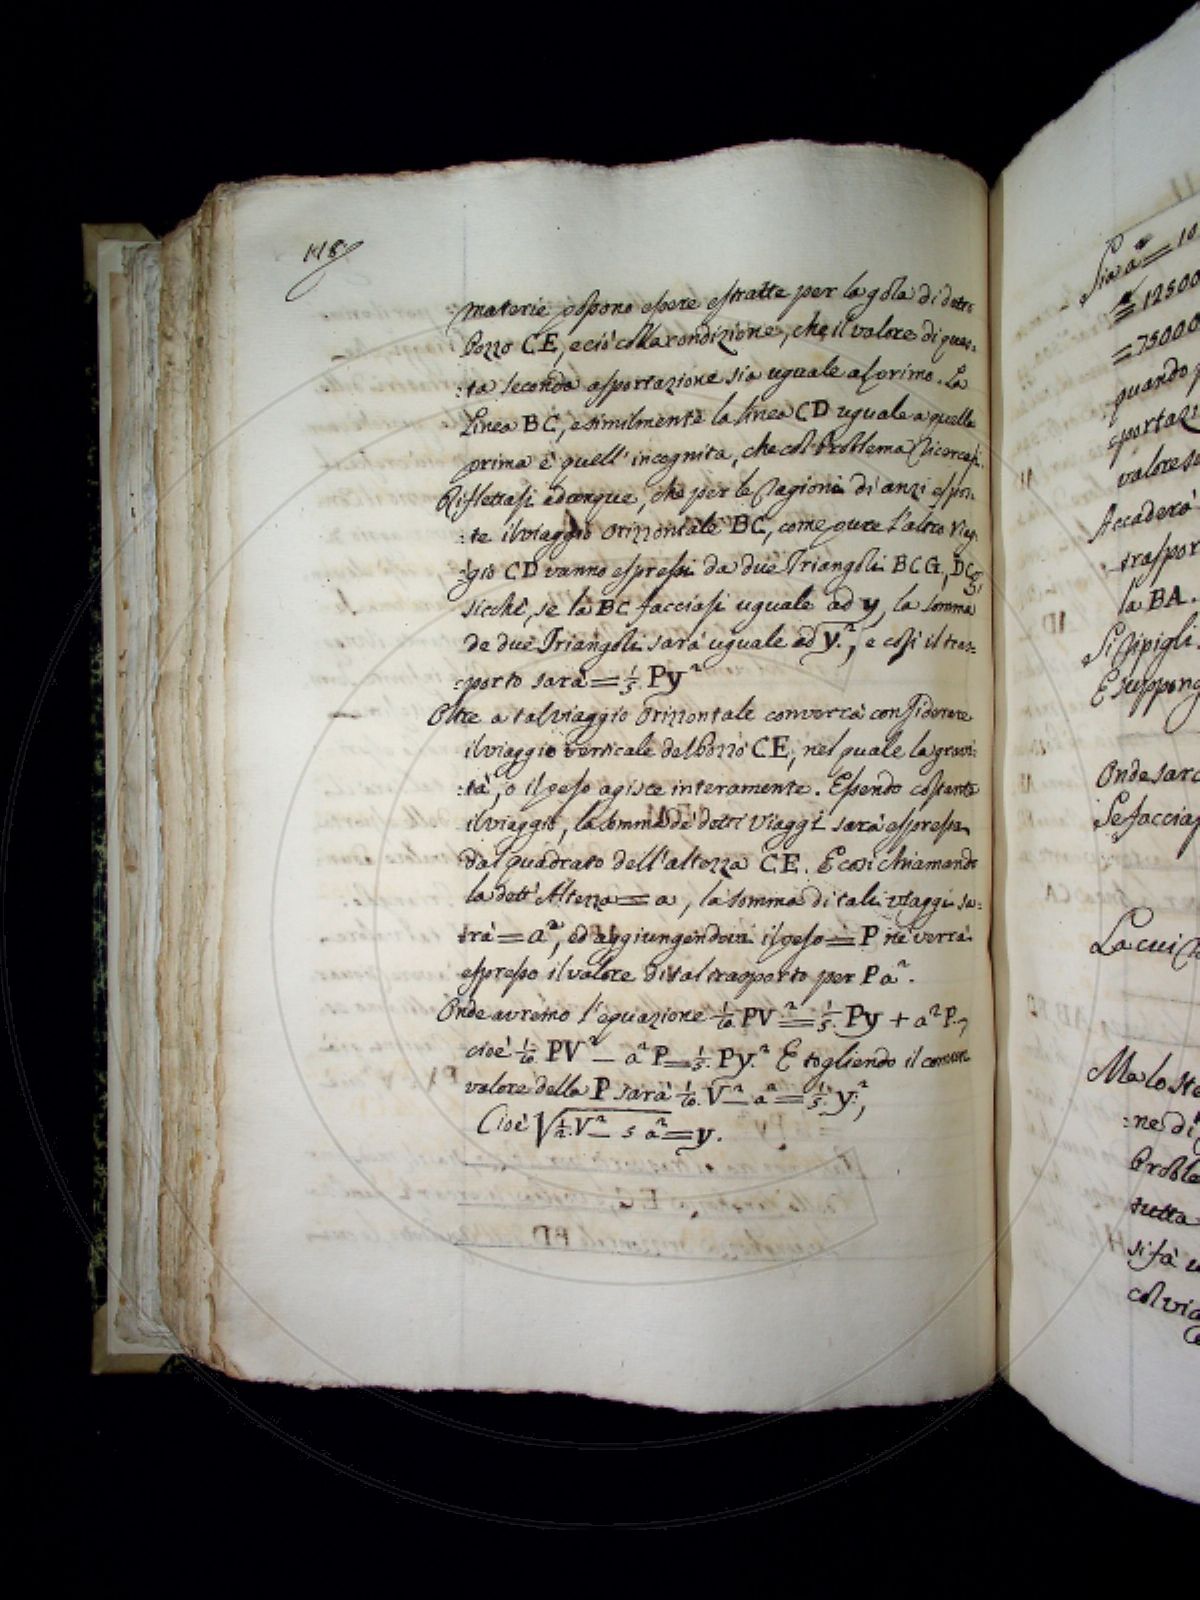 118
materie possono essere estratte per la gola di detto
Pozzo CE, e ciò colla condizione, che il valore di ques-
:ta seconda asportazione sia uguale al primo. La
Linea BC, e similmente la linea CD uguale a quella
prima è quell' incognita, che col Problema ricercasi.
Riflettasi adonque, che per le ragioni di anzi espos-
:te il viaggio orizzontale BC, come pure l'altro viag-
:gio CD vanno espressi da due Triangoli BCG, DCG,
sicchè, se la BC facciasi uguale ad y, la somma
de due Triangoli sarà uguale ad y², e così il tras-
:porto sarà = 1/5. Py²
Oltre a tal viaggio Orizzontale converrà considerare
il viaggio verticale del Pozzo CE, nel quale la gravi-
:tà, o il peso agisce interamente. Essendo costante
il viaggio, la somma de detti Viaggi sarà espressa
dal quadrato dell'altezza CE. E così chiamando
la dett' Altezza = a, la somma di tali viaggi sa-
:rà = a², ed aggiungendovi il peso = P ne verrà
espresso il valore di tal trasporto per Pa².
Onde avremo l'equazione 1/10 PV² = 1/5. Py + a²P.,
cioè 1/10 PV² – a²P = 1/5. Py.² E togliendo il comun
valore della P sarà 1/10. V² – a² = 1/5. y²,
Cioè √1/2.V² – 5 a² = y.
Sia a = 10
= 12500
= 75000
quando
sportazi
valore
Accaderà
:traspor
la BA.
Si ripigli
E suppong
Onde sarà
Se faccias
La cui
Ma lo ste
:ne di
Proble
tutta
si fà
col via